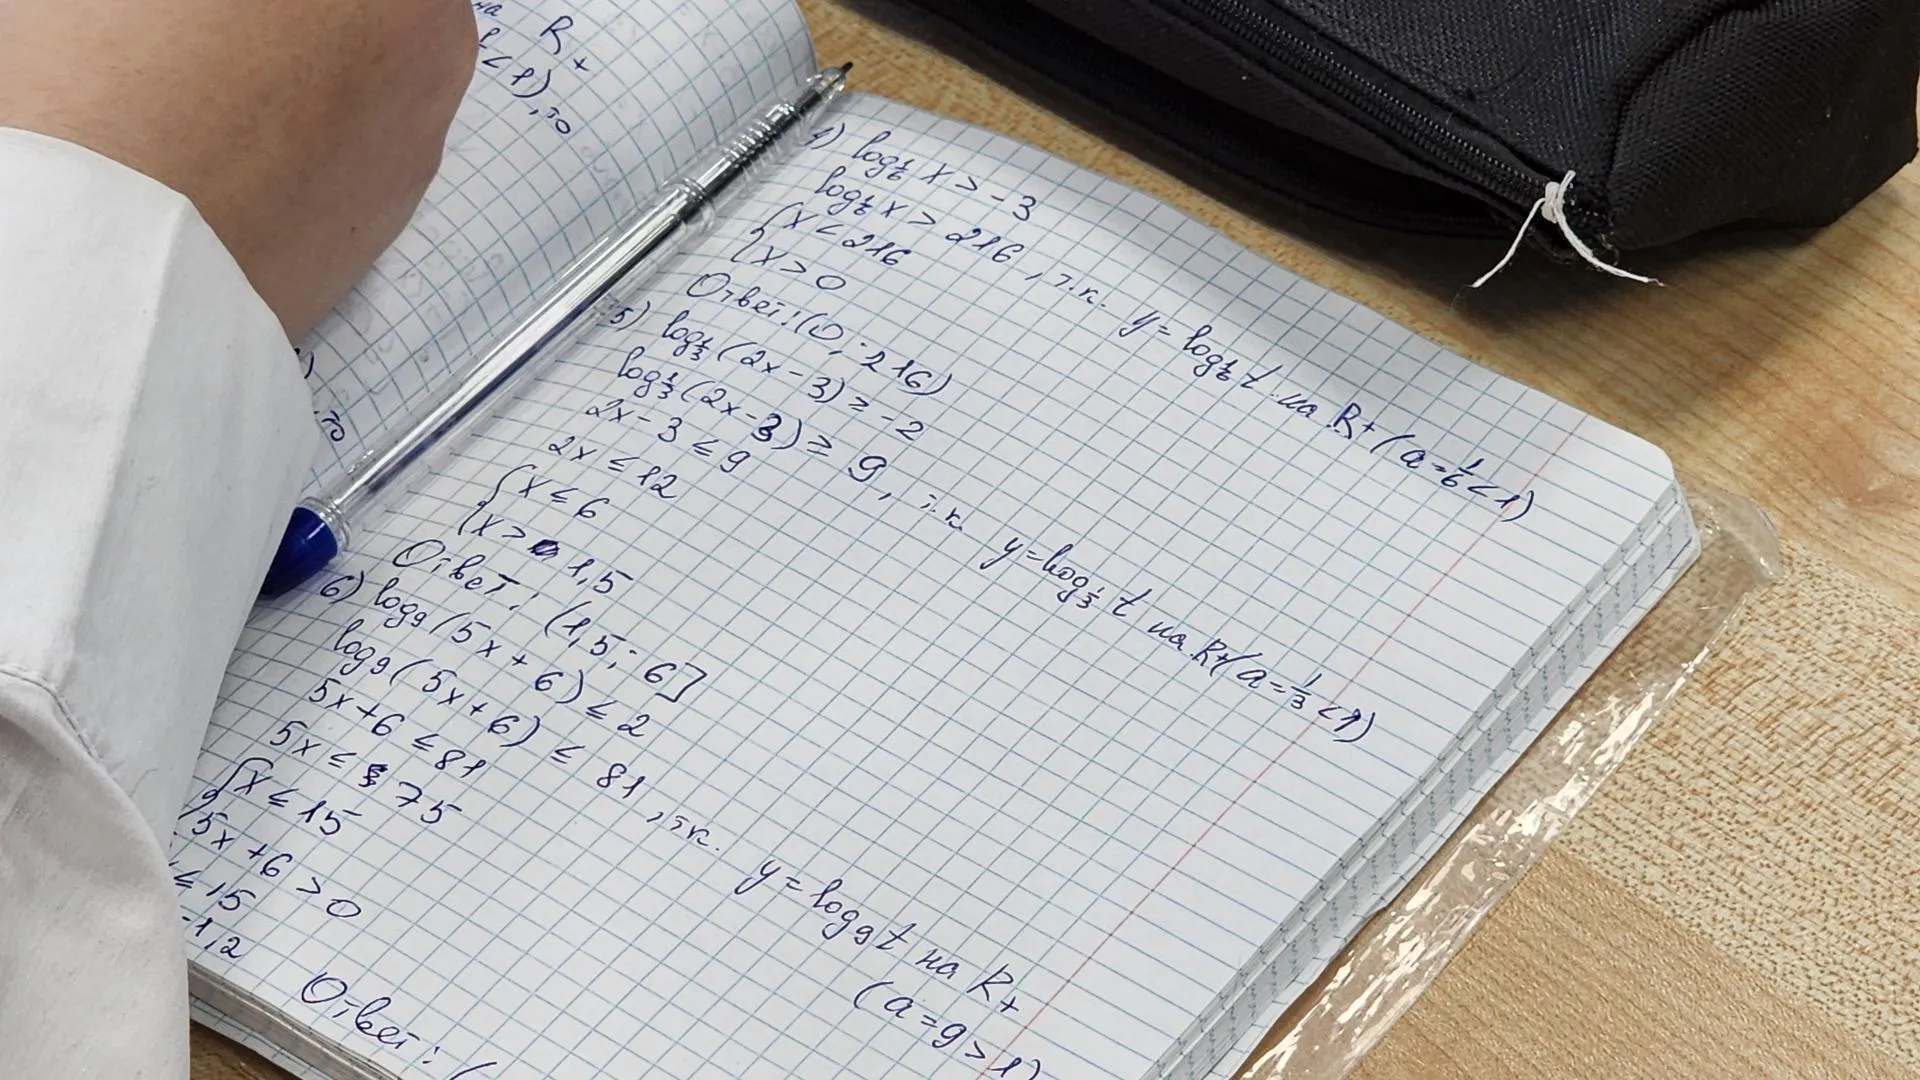 на
R+
< 1), то
, то
4) log 1/6 x > -3
log 1/6 x > 216, т.к. y = log 1/6 t на R+ (a = 1/6 < 1)
{ x < 216
{ x > 0
Ответ: (0; 216)
5) log 1/3 (2x - 3) ≥ -2
log 1/3 (2x - 3) ≥ 9, т.к. y = log 1/3 t на R+ (a = 1/3 < 1)
2x - 3 ≤ 9
2x ≤ 12
{ x ≤ 6
{ x > 1,5
Ответ: (1,5; 6]
6) log9 (5x + 6) ≤ 2
log9 (5x + 6) ≤ 81, т.к. y = log9 t на R+
(a = 9 > 1)
5x + 6 ≤ 81
5x ≤ 75
{ x ≤ 15
{ 5x + 6 > 0
≤ 15
-1,2
Ответ: (